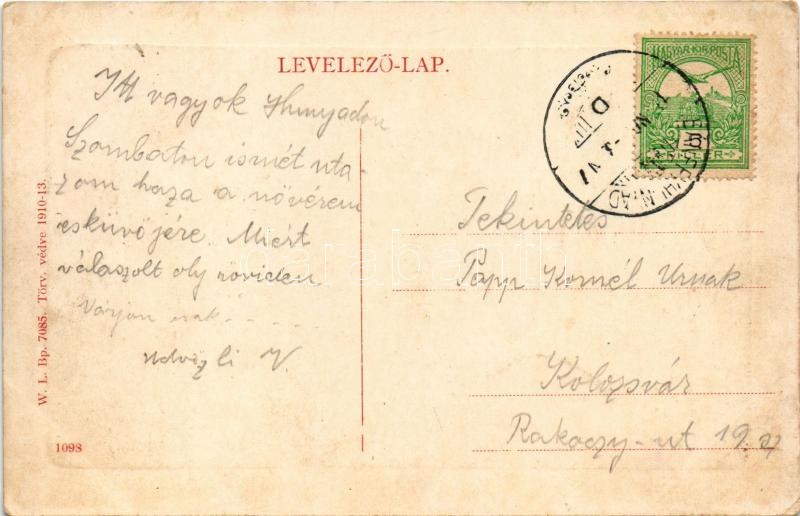 LEVELEZŐ-LAP.
MAGYAR KIR. POSTA
Itt vagyok Hunyadon
Szombaton ismét uta-
zom haza a nővérem
esküvőjére. Miért
válaszolt oly röviden
Várjon csak . . . . .
Üdvözli V.
Tekintetes
Papp Kornél Urnak
Kolozsvár
Rakoczy-ut 19.
W. L. Bp. 7085. Törv. védve 1910-13.
1098
darabanth